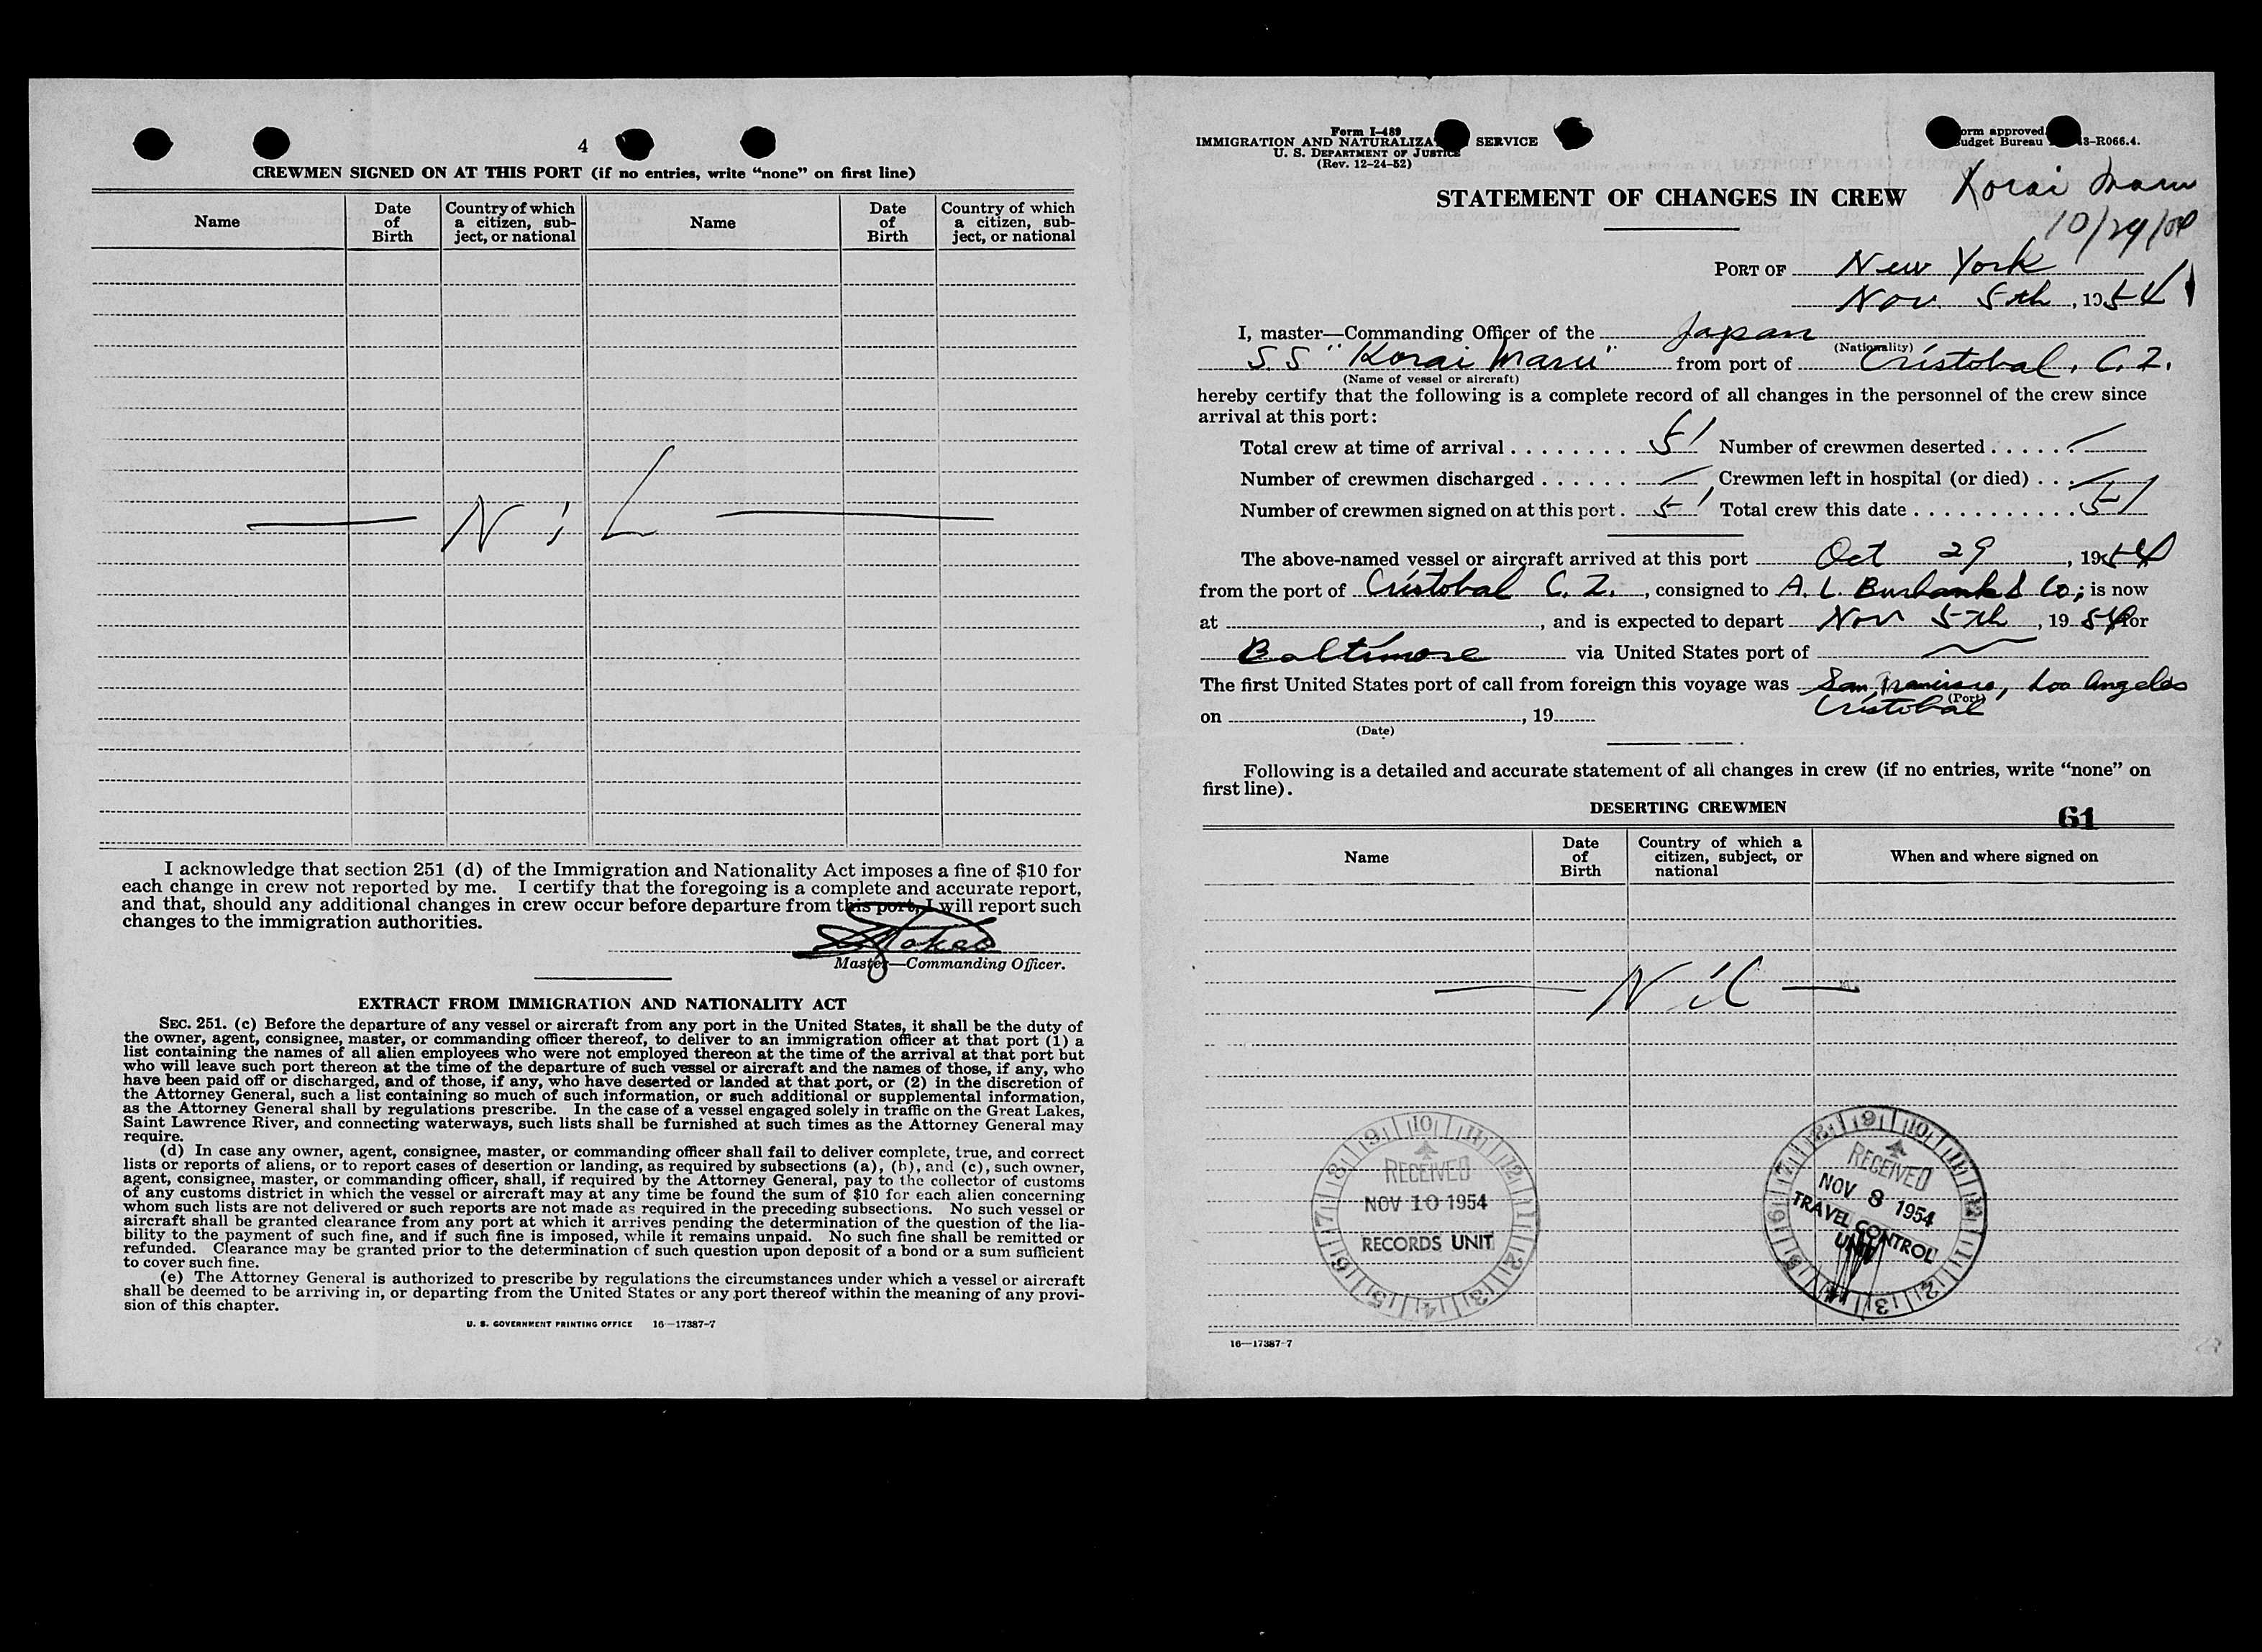 4
CREWMEN SIGNED ON AT THIS PORT (if no entries, write “none” on first line)
Name
Date of Birth
Country of which a citizen, sub-ject, or national
Name
Date of Birth
Country of which a citizen, sub-ject, or national
NiL
I acknowledge that section 251 (d) of the Immigration and Nationality Act imposes a fine of $10 for
each change in crew not reported by me. I certify that the foregoing is a complete and accurate report,
and that, should any additional changes in crew occur before departure from this port, I will report such
changes to the immigration authorities.
Master—Commanding Officer.
EXTRACT FROM IMMIGRATION AND NATIONALITY ACT
SEC. 251. (c) Before the departure of any vessel or aircraft from any port in the United States, it shall be the duty of
the owner, agent, consignee, master, or commanding officer thereof, to deliver to an immigration officer at that port (1) a
list containing the names of all alien employees who were not employed thereon at the time of the arrival at that port but
who will leave such port thereon at the time of the departure of such vessel or aircraft and the names of those, if any, who
have been paid off or discharged, and of those, if any, who have deserted or landed at that port, or (2) in the discretion of
the Attorney General, such a list containing so much of such information, or such additional or supplemental information,
as the Attorney General shall by regulations prescribe. In the case of a vessel engaged solely in traffic on the Great Lakes,
Saint Lawrence River, and connecting waterways, such lists shall be furnished at such times as the Attorney General may
require.
(d) In case any owner, agent, consignee, master, or commanding officer shall fail to deliver complete, true, and correct
lists or reports of aliens, or to report cases of desertion or landing, as required by subsections (a), (b), and (c), such owner,
agent, consignee, master, or commanding officer, shall, if required by the Attorney General, pay to the collector of customs
of any customs district in which the vessel or aircraft may at any time be found the sum of $10 for each alien concerning
whom such lists are not delivered or such reports are not made as required in the preceding subsections. No such vessel or
aircraft shall be granted clearance from any port at which it arrives pending the determination of the question of the lia-
bility to the payment of such fine, and if such fine is imposed, while it remains unpaid. No such fine shall be remitted or
refunded. Clearance may be granted prior to the determination of such question upon deposit of a bond or a sum sufficient
to cover such fine.
(e) The Attorney General is authorized to prescribe by regulations the circumstances under which a vessel or aircraft
shall be deemed to be arriving in, or departing from the United States or any port thereof within the meaning of any provi-
sion of this chapter.
U. S. GOVERNMENT PRINTING OFFICE 16—17387-7
Form I-489
IMMIGRATION AND NATURALIZA SERVICE
U. S. DEPARTMENT OF JUSTICE
(Rev. 12-24-52)
orm approved.
udget Bureau 43-R066.4.
STATEMENT OF CHANGES IN CREW
Korai Maru
10/29/54
PORT OF New York
Nov. 5th, 1954
I, master—Commanding Officer of the Japan
(Nationality)
S.S "Korai Maru" from port of Cristobal, C.Z.
(Name of vessel or aircraft)
hereby certify that the following is a complete record of all changes in the personnel of the crew since
arrival at this port:
Total crew at time of arrival . . . . . . . . 51 Number of crewmen deserted . . . . . . —
Number of crewmen discharged . . . . . . — Crewmen left in hospital (or died) . . . —
Number of crewmen signed on at this port . 51 Total crew this date . . . . . . . . . . . . 51
The above-named vessel or aircraft arrived at this port Oct 29, 1954
from the port of Cristobal C. Z., consigned to A. L. Burbank & Co; is now
at , and is expected to depart Nov 5th, 1954 for
Baltimore via United States port of —
The first United States port of call from foreign this voyage was San Francisco, Los Angeles
(Port)
Cristobal
on , 19
(Date)
Following is a detailed and accurate statement of all changes in crew (if no entries, write “none” on
first line).
DESERTING CREWMEN
61
Name
Date of Birth
Country of which a citizen, subject, or national
When and where signed on
Nil
RECEIVED
NOV 10 1954
RECORDS UNIT
RECEIVED
NOV 8 1954
TRAVEL CONTROL
UNIT
16—17387-7